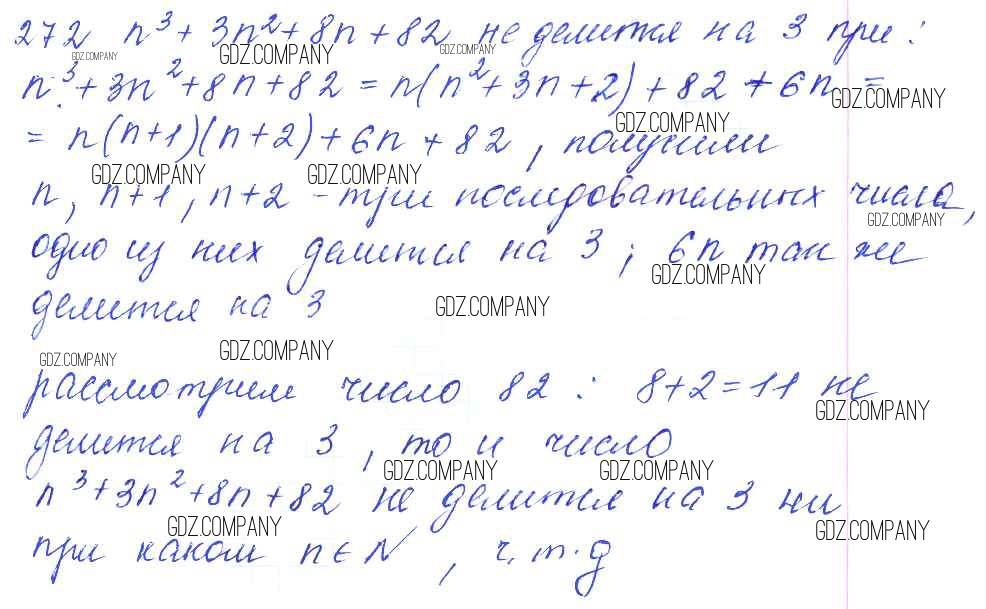 272 n³ + 3n² + 8n + 82 не делится на 3 при:
GDZ.COMPANY GDZ.COMPANY GDZ.COMPANY
n³ + 3n² + 8n + 82 = n(n² + 3n + 2) + 82 + 6n =
GDZ.COMPANY
= n(n+1)(n+2) + 6n + 82, получили
GDZ.COMPANY
GDZ.COMPANY GDZ.COMPANY
n, n+1, n+2 - три последовательных числа,
GDZ.COMPANY
одно из них делится на 3; 6n так же
GDZ.COMPANY
делится на 3
GDZ.COMPANY
GDZ.COMPANY GDZ.COMPANY
рассмотрим число 82 : 8+2=11 не
GDZ.COMPANY
делится на 3, то и число
GDZ.COMPANY GDZ.COMPANY
n³ + 3n² + 8n + 82 не делится на 3 ни
GDZ.COMPANY GDZ.COMPANY
при каком n ∈ N, ч.т.д